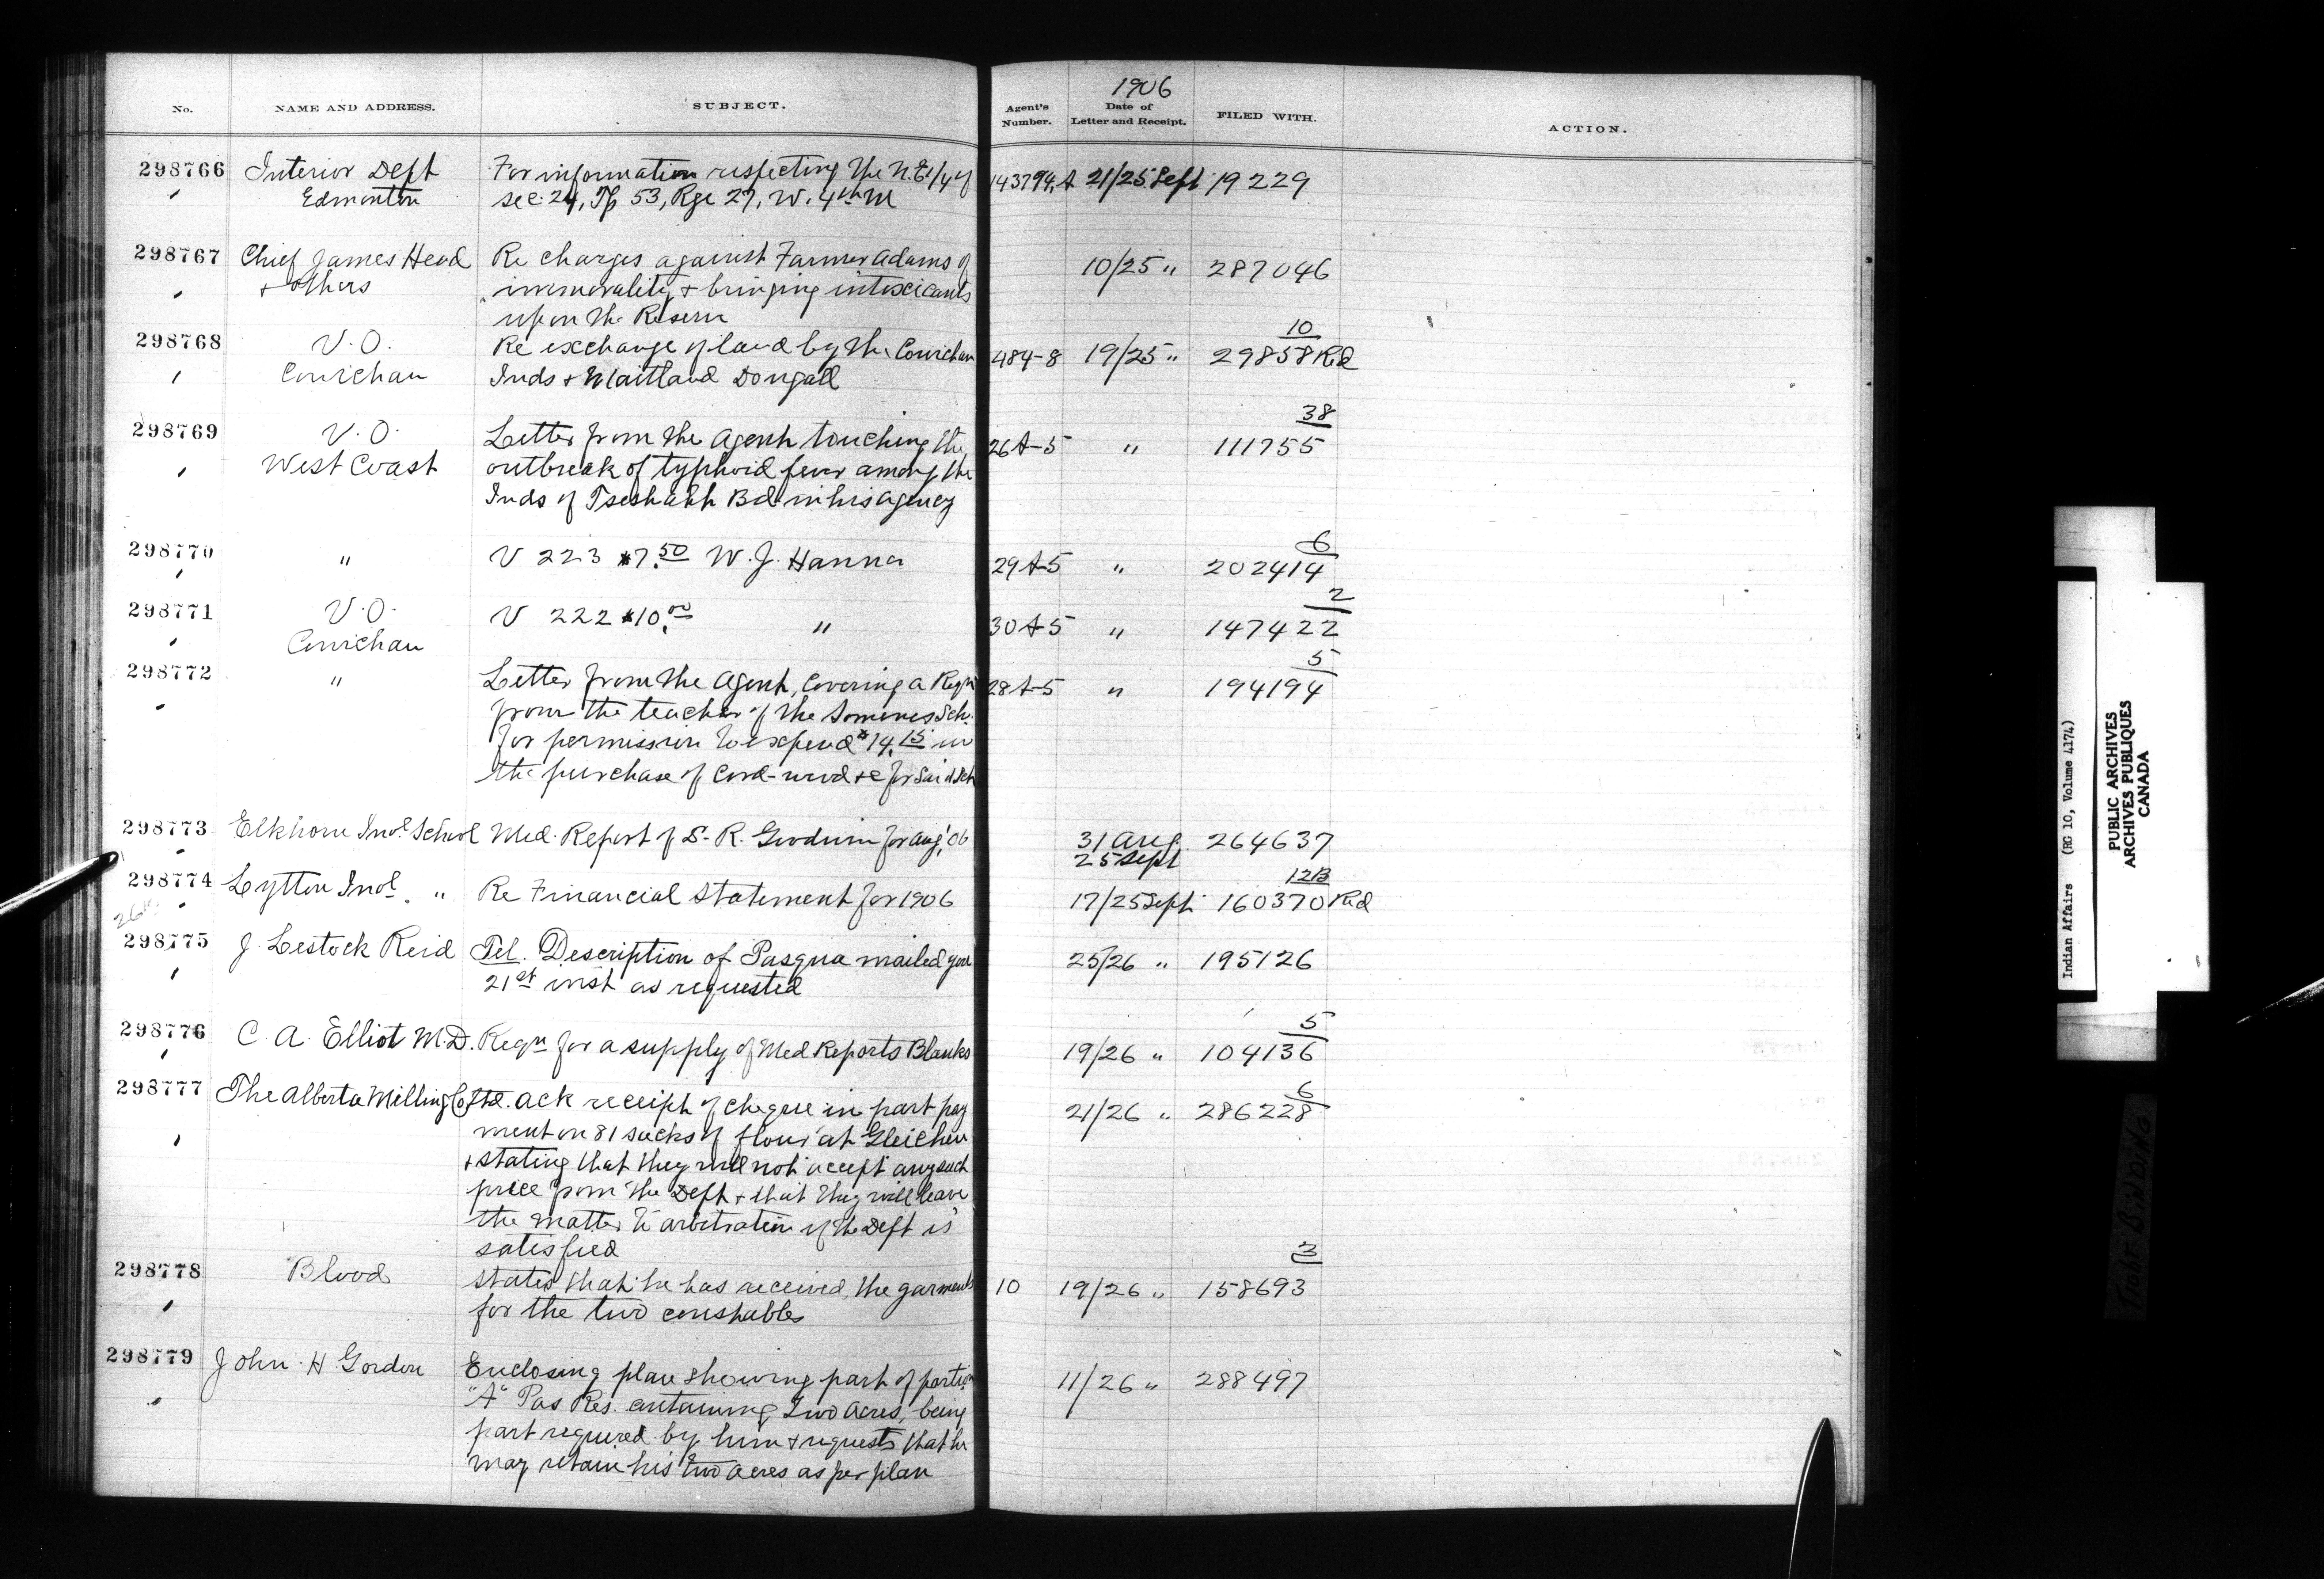 1906
No. NAME AND ADDRESS. SUBJECT. Agent's Number. Date of Letter and Receipt. FILED WITH. ACTION.
298766 Interior Dept For information respecting the N.E1/4 of 143794,A 21/25 Sept 19229
Edmonton sec. 24, Tp 53, Rge 27, W. 4th M
298767 Chief James Head Re charges against Farmer Adams of 10/25 " 287046
+ others immorality + bringing intoxicants
upon the Reserve
298768 V.O. Re exchange of land by the Cowichan 484-8 19/25 " 29858 10 Rd
Cowichan Inds + Maitland Dougall
298769 V.O. Letter from the Agent touching the 26A-5 " 111755 38
West Coast outbreak of typhoid fever among the
Inds of Tseshaht Bd in his agency
298770 " V 223 $7.50 W. J. Hanna 29A-5 " 202414 6
298771 V.O. V 222 $10.00 " 30A-5 " 147422 2
Cowichan
298772 " Letter from the Agent, covering a Reqn 28A-5 " 194194 5
from the teacher of the Somenos Sch.
for permission to expend $14.15 in
the purchase of Cord-wood &c for said Sch
298773 Elkhorn Indl School Med. Report of S. R. Goodwin for Aug, '06 31 Aug. 264637
25 Sept
298774 Lytton Indl. " Re Financial Statement for 1906 17/25 Sept 160370 12B Rd
298775 J. Lestock Reid Tel. Description of Pasqua mailed you 25/26 " 195126
21st inst as requested
298776 C. A. Elliot M.D. Reqn for a supply of Med Reports Blanks 19/26 " 104136 5
298777 The Alberta Milling Co Ltd. ack receipt of cheque in part pay 21/26 " 286228 6
ment on 81 sacks of flour at Gleichen
+ stating that they will not accept any such
price from the Dept + that they will leave
the matter to arbitration if the Dept is
satisfied
298778 Blood States that he has received the garments 10 19/26 " 158693 3
for the two constables
298779 John H. Gordon Enclosing plan showing part of portion 11/26 " 288497
"A" Pas Res. containing Two Acres, being
part required by him + requests that he
may retain his two acres as per plan
Indian Affairs (RG 10, Volume 4174)
PUBLIC ARCHIVES
ARCHIVES PUBLIQUES
CANADA
TIGHT BINDING